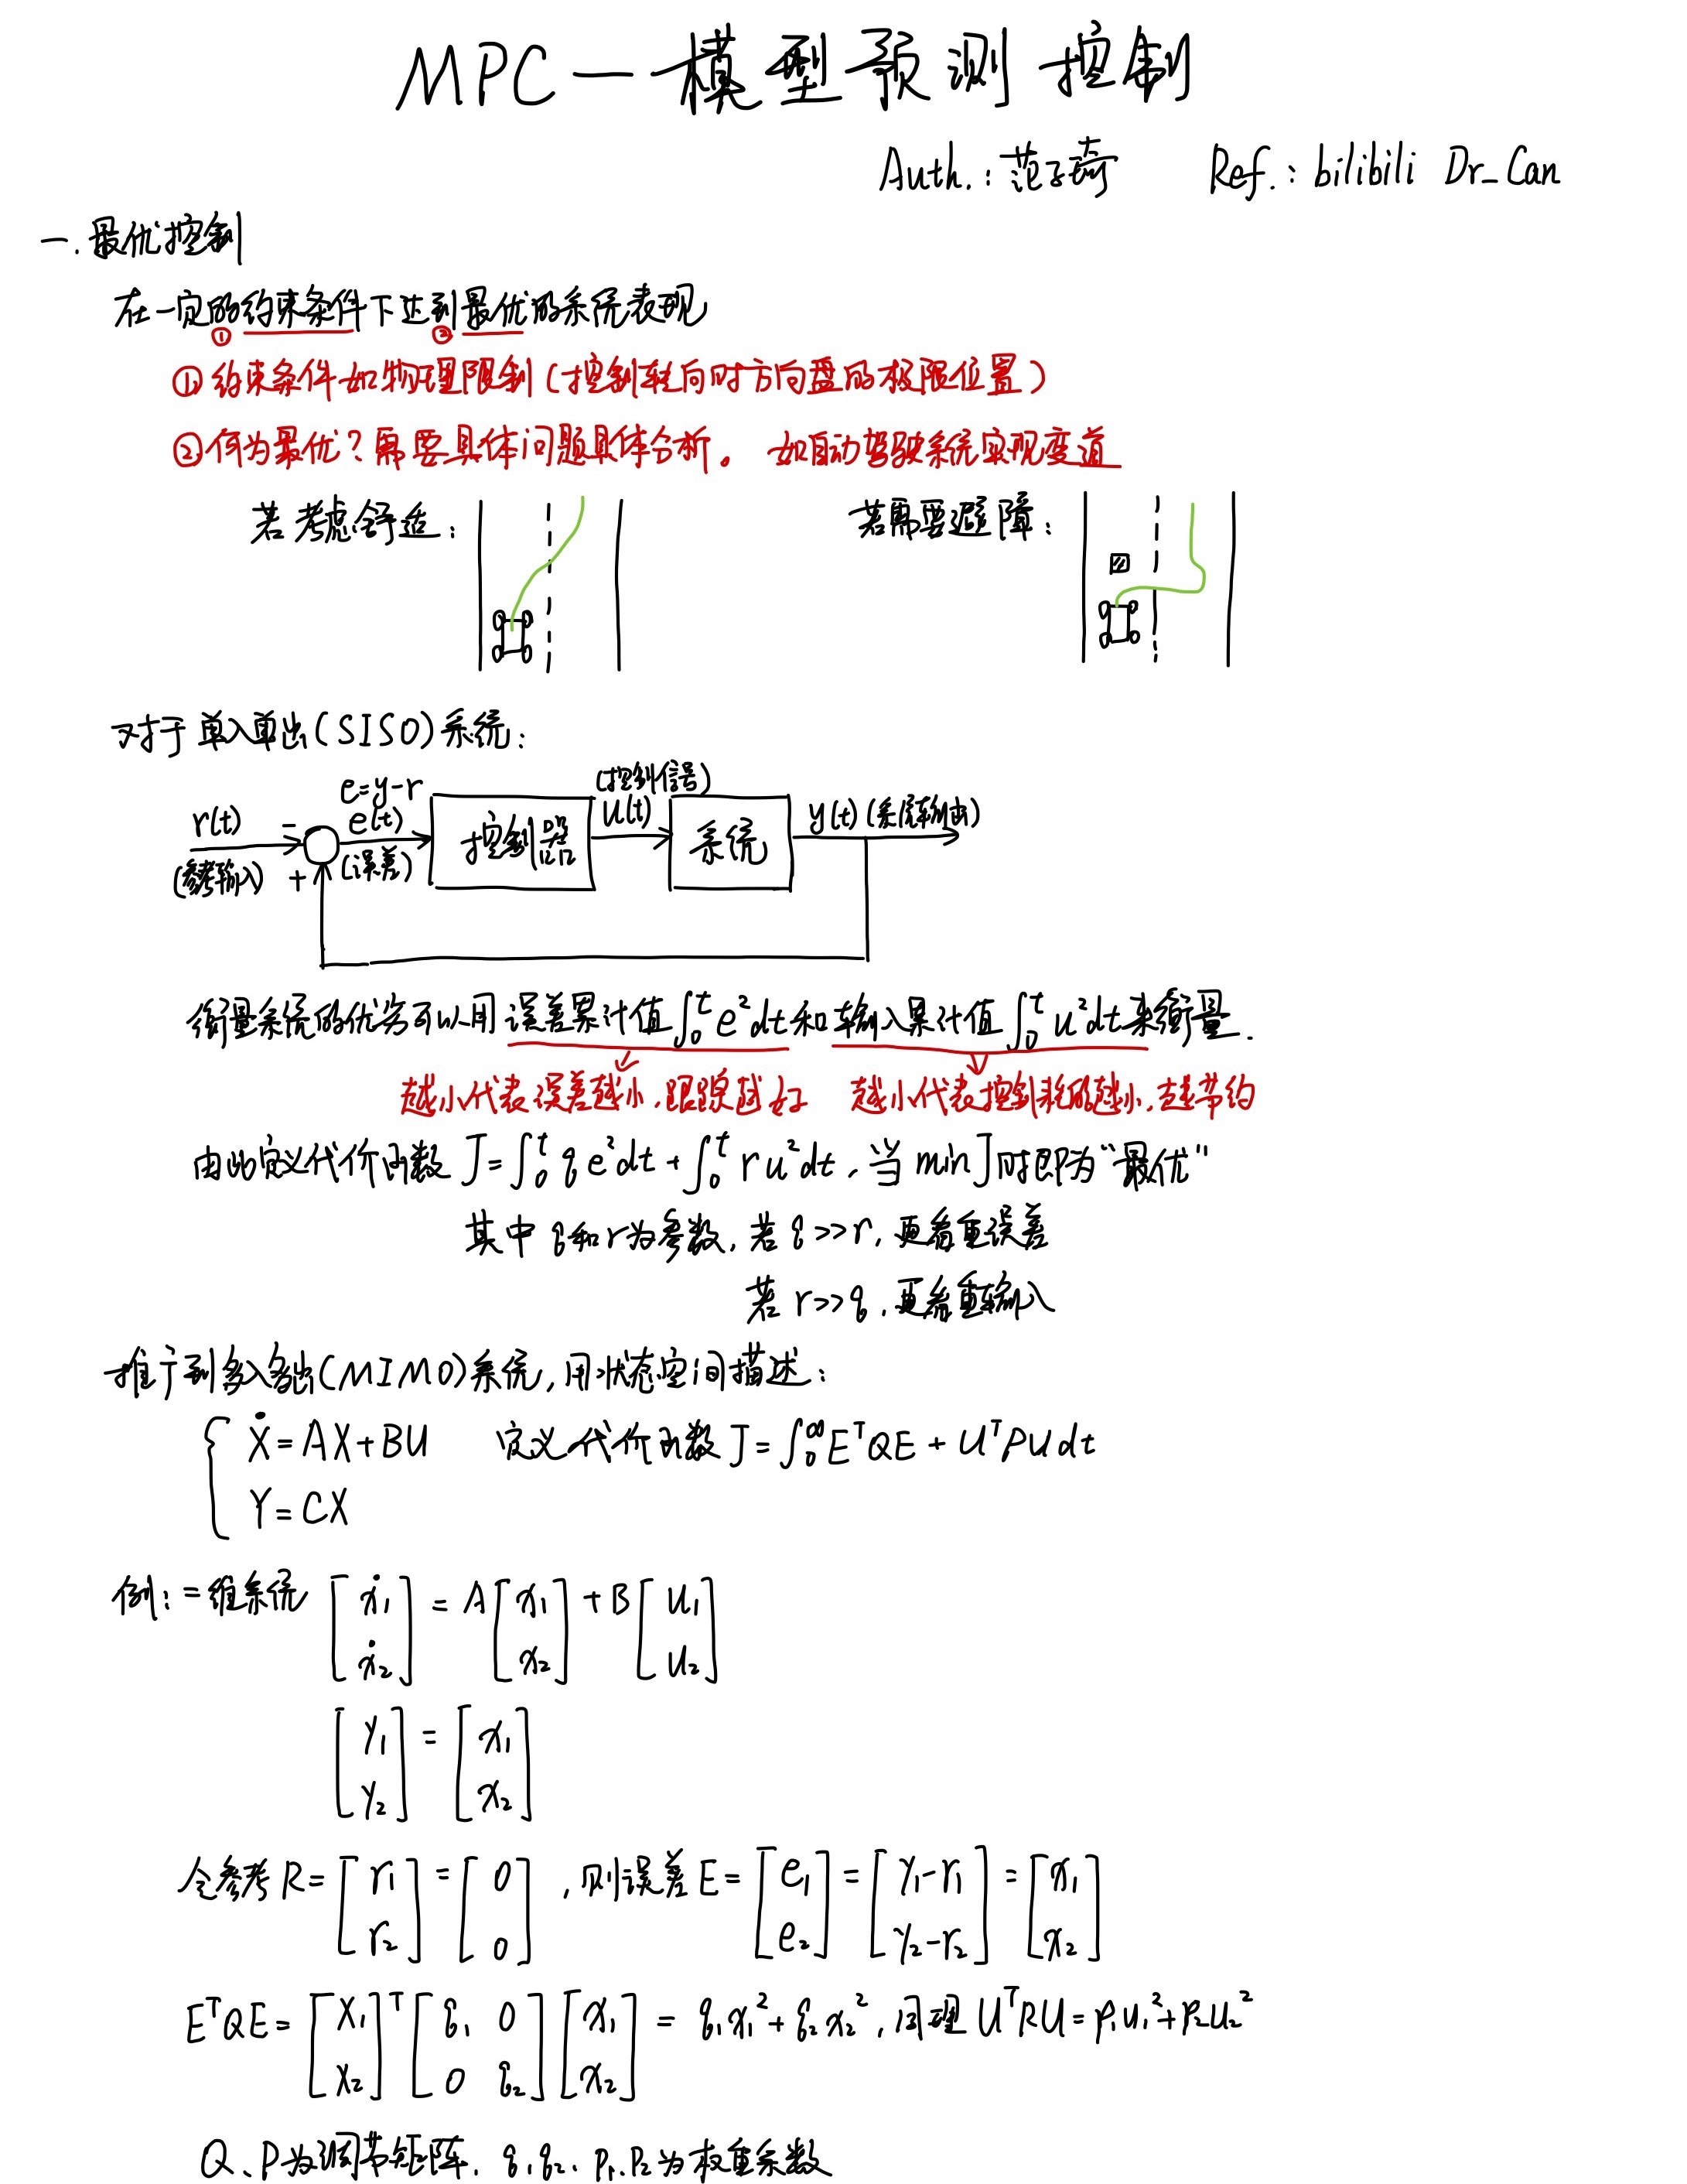 MPC — 模型预测控制
Auth.: 范子琦 Ref.: bilibili Dr_Can
一. 最优控制
在一定的约束条件下达到最优的系统表现
① ②
① 约束条件如物理限制(控制转向时方向盘的极限位置)
② 何为最优?需要具体问题具体分析。 如自动驾驶系统实现变道
若考虑舒适: 若需要避障:
对于单入单出(SISO)系统:
e=y-r (控制信号)
r(t) - e(t) 控制器 u(t) 系统 y(t) (系统输出)
(参考输入) + (误差)
衡量系统的优劣可以用误差累计值∫₀ᵗ e²dt和输入累计值∫₀ᵗ u²dt来衡量.
越小代表误差越小,跟踪越好 越小代表控制耗能越小,越节约
由此定义代价函数 J=∫₀ᵗ q e²dt + ∫₀ᵗ r u²dt, 当 min J 时即为"最优"
其中 q和r为参数, 若 q>>r, 更看重误差
若 r>>q, 更看重输入
推广到多入多出(MIMO)系统,用状态空间描述:
{ Ẋ=AX+BU 定义代价函数 J=∫₀^∞ EᵀQE + UᵀPU dt
Y=CX
例: 二维系统 [ẋ₁ ẋ₂] = A[x₁ x₂] + B[u₁ u₂]
[y₁ y₂] = [x₁ x₂]
令参考 R=[r₁ r₂]=[0 0], 则误差 E=[e₁ e₂]=[y₁-r₁ y₂-r₂]=[x₁ x₂]
EᵀQE=[x₁ x₂]ᵀ[q₁ 0 0 q₂][x₁ x₂] = q₁x₁²+q₂x₂², 同理 UᵀRU=p₁u₁²+p₂u₂²
Q、P为调节矩阵, q₁q₂、p₁、p₂为权重系数